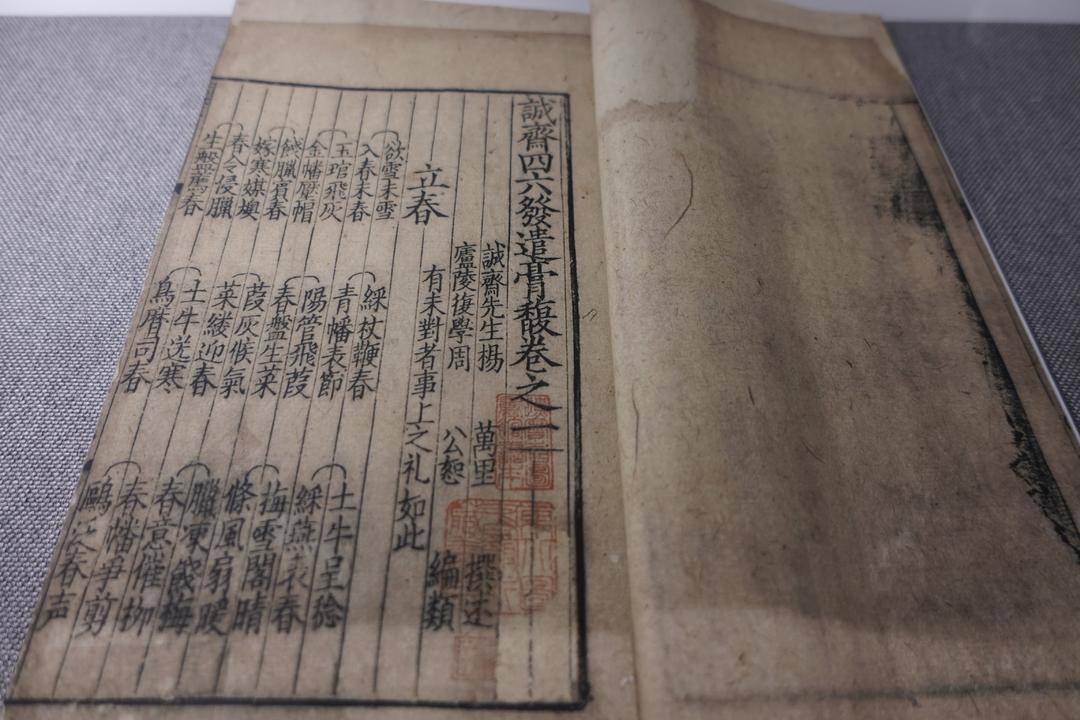 誠齋四六發遣膏馥卷之一
誠齋先生楊 萬里 撰述
廬陵後學周 公恕 編類
立春 有未對者事上之礼如此
欲雪未雪 綵杖鞭春 土牛呈稔
入春未春 青幡表節 綵燕表春
玉琯飛灰 陽管飛葭 梅雪閣晴
金幡壓帽 春盤生菜 條風扇暖
餞臘賓春 葭灰候氣 臘凍餞梅
嫁寒娸燠 菜縷迎春 春意催柳
春令侵臘 土牛送寒 春幡爭剪
生盤薦春 鳥曆司春 春声